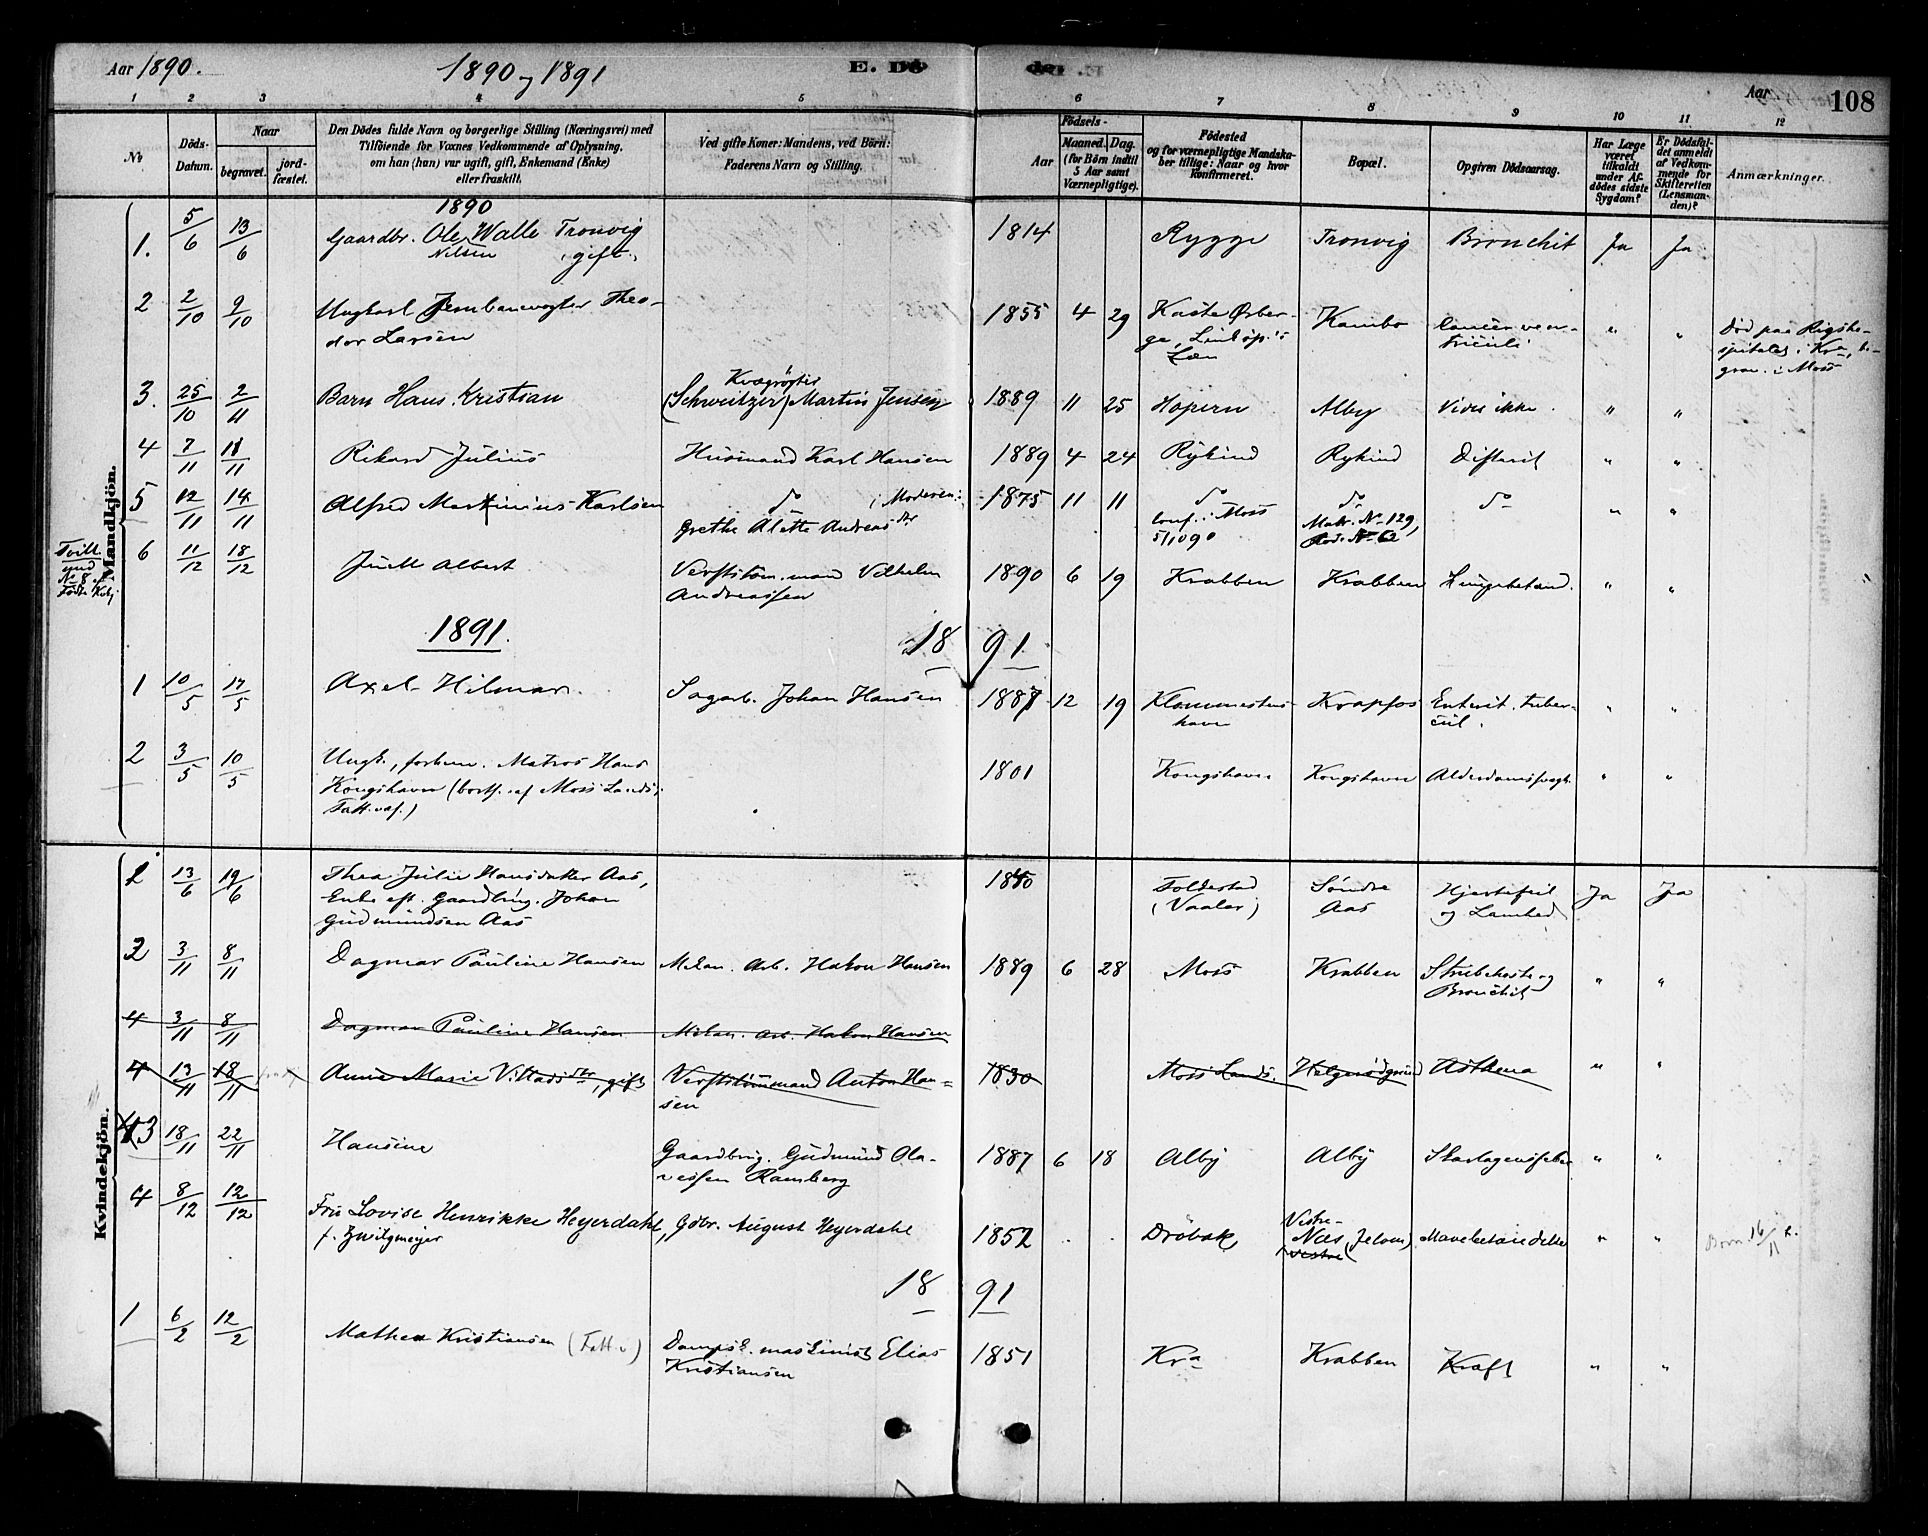 Aar 1890.
1890 og 1891
E. Dö
der
Aar
108
1 2 3 4 5 6 7 8 9 10 11 12
No
Döds-
Datum.
Naar
begravet.
jord-
fæstet.
Den Dödes fulde Navn og borgerlige Stilling (Næringsvei) med
Tilföiende for Voxnes Vedkommende af Oplysning,
om han (hun) var ugift, gift, Enkemand (Enke)
eller fraskilt.
Ved gifte Koner: Mandens, ved Börn:
Faderens Navn og Stilling.
Födsels-
Aar
Maaned.
Dag.
(for Börn indtil
5 Aar samt
Værnepligtige).
Födested
og for værnepligtige Mandska-
ber tillige: Naar og hvor
konfirmeret.
Bopæl.
Opgiven Dödsaarsag.
Har Læge
været
tilkaldt
under Af-
dödes sidste
Sygdom?
Er Dödsfal-
det anmeldt
af Vedkom-
mende for
Skifteretten
(Lensman-
den)?
Anmærkninger.
Mandkjön.
1890
1. 5/6 13/6 Gaardbr. Ole Walle Tronvig 1814 Rygge Tronvig Bronchit Ja Ja
Nilsen gift.
2 2/10 9/10 Ungkarl Jernbanevogter Theo- 1855 4 29 Kaste Østber- Kambo Cancer ven- " "
dor Larsen
ga, Linköp.s
Læn
triculi
Död paa Rigsho-
spitalet i Kra, be-
grav. i Moss
3. 25/10 2/11 Barn Hans Kristian (Schweitzer) Martin Jensen 1889 11 25 Hopern Alby Vides ikke. " "
Kvægrögter
4 7/11 11/11 Rikard Julius Husmand Karl Hansen 1889 4 24 Rykind Rykind Difterit " "
5 12/11 14/11 Alfred Martinius Karlsen do Moderen: 1875 11 11 do do do " "
Grethe Alette Andreasdr
conf. i Moss
5/10 90
Matr. No 129,
6 11/12 18/12 Juell Albert Verftstöm.mand Vilhelm 1890 6 19 Krabben Krabben Lungebetænd. " "
Andreassen
Tvill.
No 8
1891.
18 91
1 10/5 17/5 Axel Hilmar. Sagarb. Johan Hansen 1887 12 19 Klommesten- Krapfos Enterit. tuber- " "
havn
cul.
2 3/5 10/5 Ungk., forhen. Matros Hans 1801 Kongshavn Kongshavn Alderdomssvagh. " "
Kongshavn (bortf. af Moss Lands.
Fattigvæs.)
Kvindekjön.
1 13/6 19/6 Thea Julie Hansdatter Aas, 1840 Foldestad Söndre Hjertefeil Ja Ja
Enke eft. Gaardbrug. Johan
Gudmundsen Aas
(Vaaler)
Aas
og Lamhed
2 3/11 8/11 Dagmar Pauline Hansen Mekan. Arb. Hakon Hansen 1889 6 28 Moss Krabben Strubehoste og " "
Bronchit
4 3/11 8/11 Dagmar Pauline Hansen Mekan. Arb. Hakon Hansen
4 13/11 18/11 Anne Marie Villadsdtr, gift Verftstömmand Anton Han- 1830 Moss Lands. Helgerödgrind Asthma " "
sen
3 18/11 22/11 Hansine Gaardbrug. Gudmund Ola- 1887 6 18 Alby Alby Skarlagensfeber " "
vessen Ramberg
4 8/12 12/12 Fru Lovise Henrikke Heyerdahl, Gdbr. August Heyerdahl 1852 Dröbak Næs (Jelöen) Mavebetændelse " "
f. Zwilgmeyer
Vestre
Vestre
18 91
1 6/2 12/2 Mathea Kristiansen (Fatt.v) Dampsk. maskinist Elias 1851 Kra Krabben Kræft " "
Kristiansen